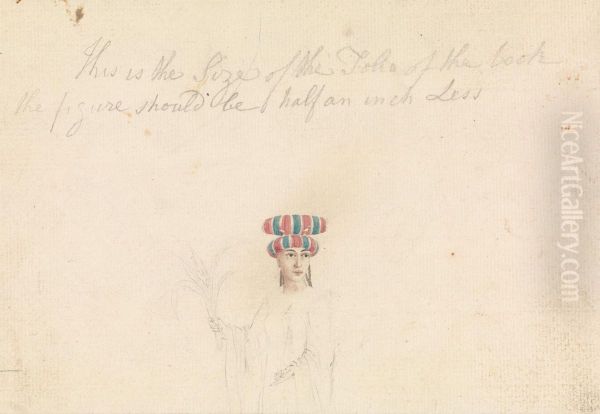 This is the Size of the Folio of the book
the figure should be half an inch Less
NiceArtGallery.com